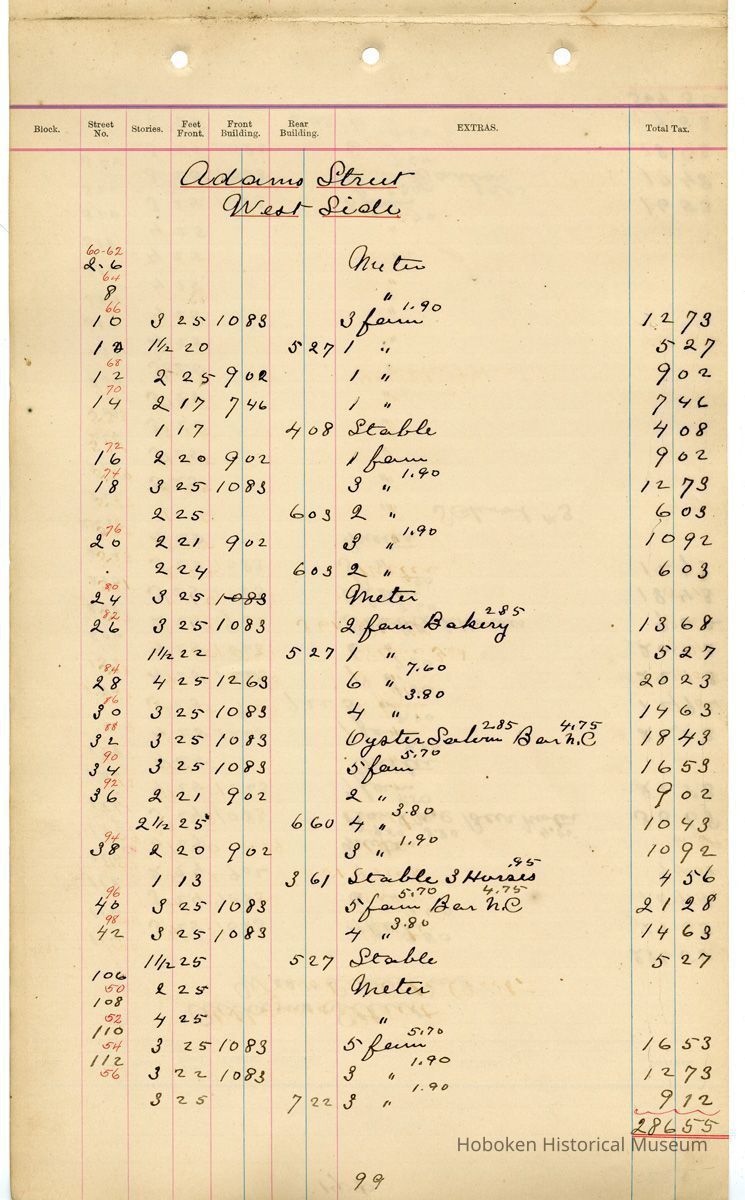 Block. Street No. Stories. Feet Front. Front Building. Rear Building. EXTRAS. Total Tax.
Adams Street
West Side
60-62
2-6 Meter
64
8 "
66 1.90
10 3 25 1083 3 fam 12 73
10 1½ 20 527 1 " 5 27
68
12 2 25 902 1 " 9 02
70
14 2 17 746 1 " 7 46
1 17 408 Stable 4 08
72
16 2 20 902 1 fam 9 02
74 1.90
18 3 25 1083 3 " 12 73
2 25 603 2 " 6 03
76 1.90
20 2 21 902 3 " 10 92
2 24 603 2 " 6 03
80
24 3 25 1083 Meter
82 2.85
26 3 25 1083 2 fam Bakery 13 68
1½ 22 527 1 " 5 27
84 7.60
28 4 25 1263 6 " 20 23
86 3.80
30 3 25 1083 4 " 14 63
88 2.85 4.75
32 3 25 1083 Oyster Saloon Bar N.C 18 43
90 5.70
34 3 25 1083 5 fam 16 53
92
36 2 21 902 2 " 9 02
3.80
2½ 25 660 4 " 10 43
94 1.90
38 2 20 902 3 " 10 92
.95
1 13 361 Stable 3 Horses 4 56
96 5.70 4.75
40 3 25 1083 5 fam Bar N.C 21 28
98 3.80
42 3 25 1083 4 " 14 63
1½ 25 527 Stable 5 27
106
50 2 25 Meter
108
52 4 25 "
110 5.70
54 3 25 1083 5 fam 16 53
112 1.90
56 3 22 1083 3 " 12 73
1.90
3 25 722 3 " 9 12
286 55
Hoboken Historical Museum
99